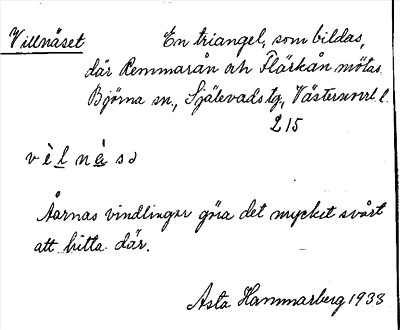 Villnäset En triangel, som bildas,
där Remmarån och Flärkån mötas.
Björna sn., Själevads tg, Västernorrl. l.
215
vèlnèsə
Åarnas vindlingar göra det mycket svårt
att hitta där.
Asta Hammarberg 1933